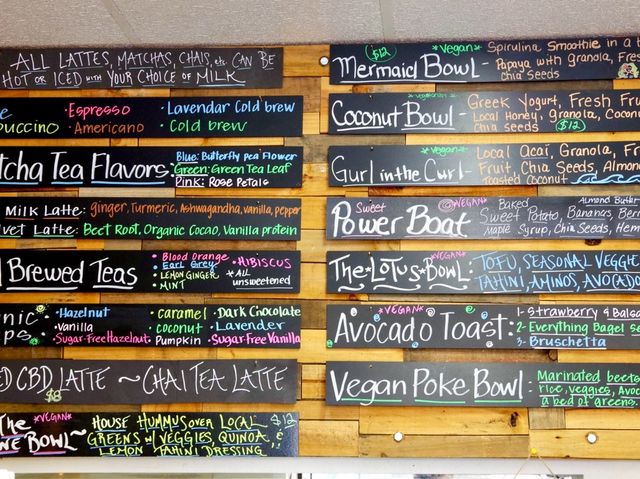 ALL LATTES, MATCHAS, CHAIS, etc. CAN BE
HOT OR ICED with YOUR CHOICE of MILK
•Espresso •Lavendar Cold brew
•Americano •Cold brew
Tea Flavors: Blue: Butterfly pea Flower
Green: Green Tea Leaf
Pink: Rose Petals
Milk Latte: ginger, Turmeric, Ashwagandha, vanilla, pepper
Latte: Beet Root, Organic Cocao, Vanilla protein
Brewed Teas
•Blood Orange •HIBISCUS
•Earl Grey
•LEMON GINGER *ALL
•MINT unsweetened
•Hazelnut •caramel •Dark Chocolate
•Vanilla •coconut •Lavender
•Sugar Free Hazelnut •Pumpkin •Sugar-Free Vanilla
CBD LATTE ~ CHAI TEA LATTE
$8
The *VEGAN* BOWL~ HOUSE HUMMUS OVER LOCAL $12
GREENS W/ VEGGIES, QUINOA, &
LEMON TAHINI DRESSING
$12 *Vegan*
Mermaid Bowl- Spirulina Smoothie in a
Papaya with granola,
chia Seeds
*vegetarian*
Coconut Bowl- Greek Yogurt, Fresh
Local Honey, granola,
Chia seeds $12
*vegan*
Gurl in the Curl- Local Acai, Granola,
Fruit, Chia Seeds,
Toasted Coconut
Sweet *VEGAN*
Power Boat- Baked Almond Butter
Sweet Potato, Bananas,
Maple Syrup, Chia Seeds,
*VEGAN*
The *Lotus* Bowl- TOFU, SEASONAL
TAHINI, AMINOS,
*VEGAN*
Avocado Toast: 1- Strawberry &
2- Everything Bagel
3- Bruschetta
Vegan Poke Bowl: Marinated beets
rice, veggies,
a bed of greens.